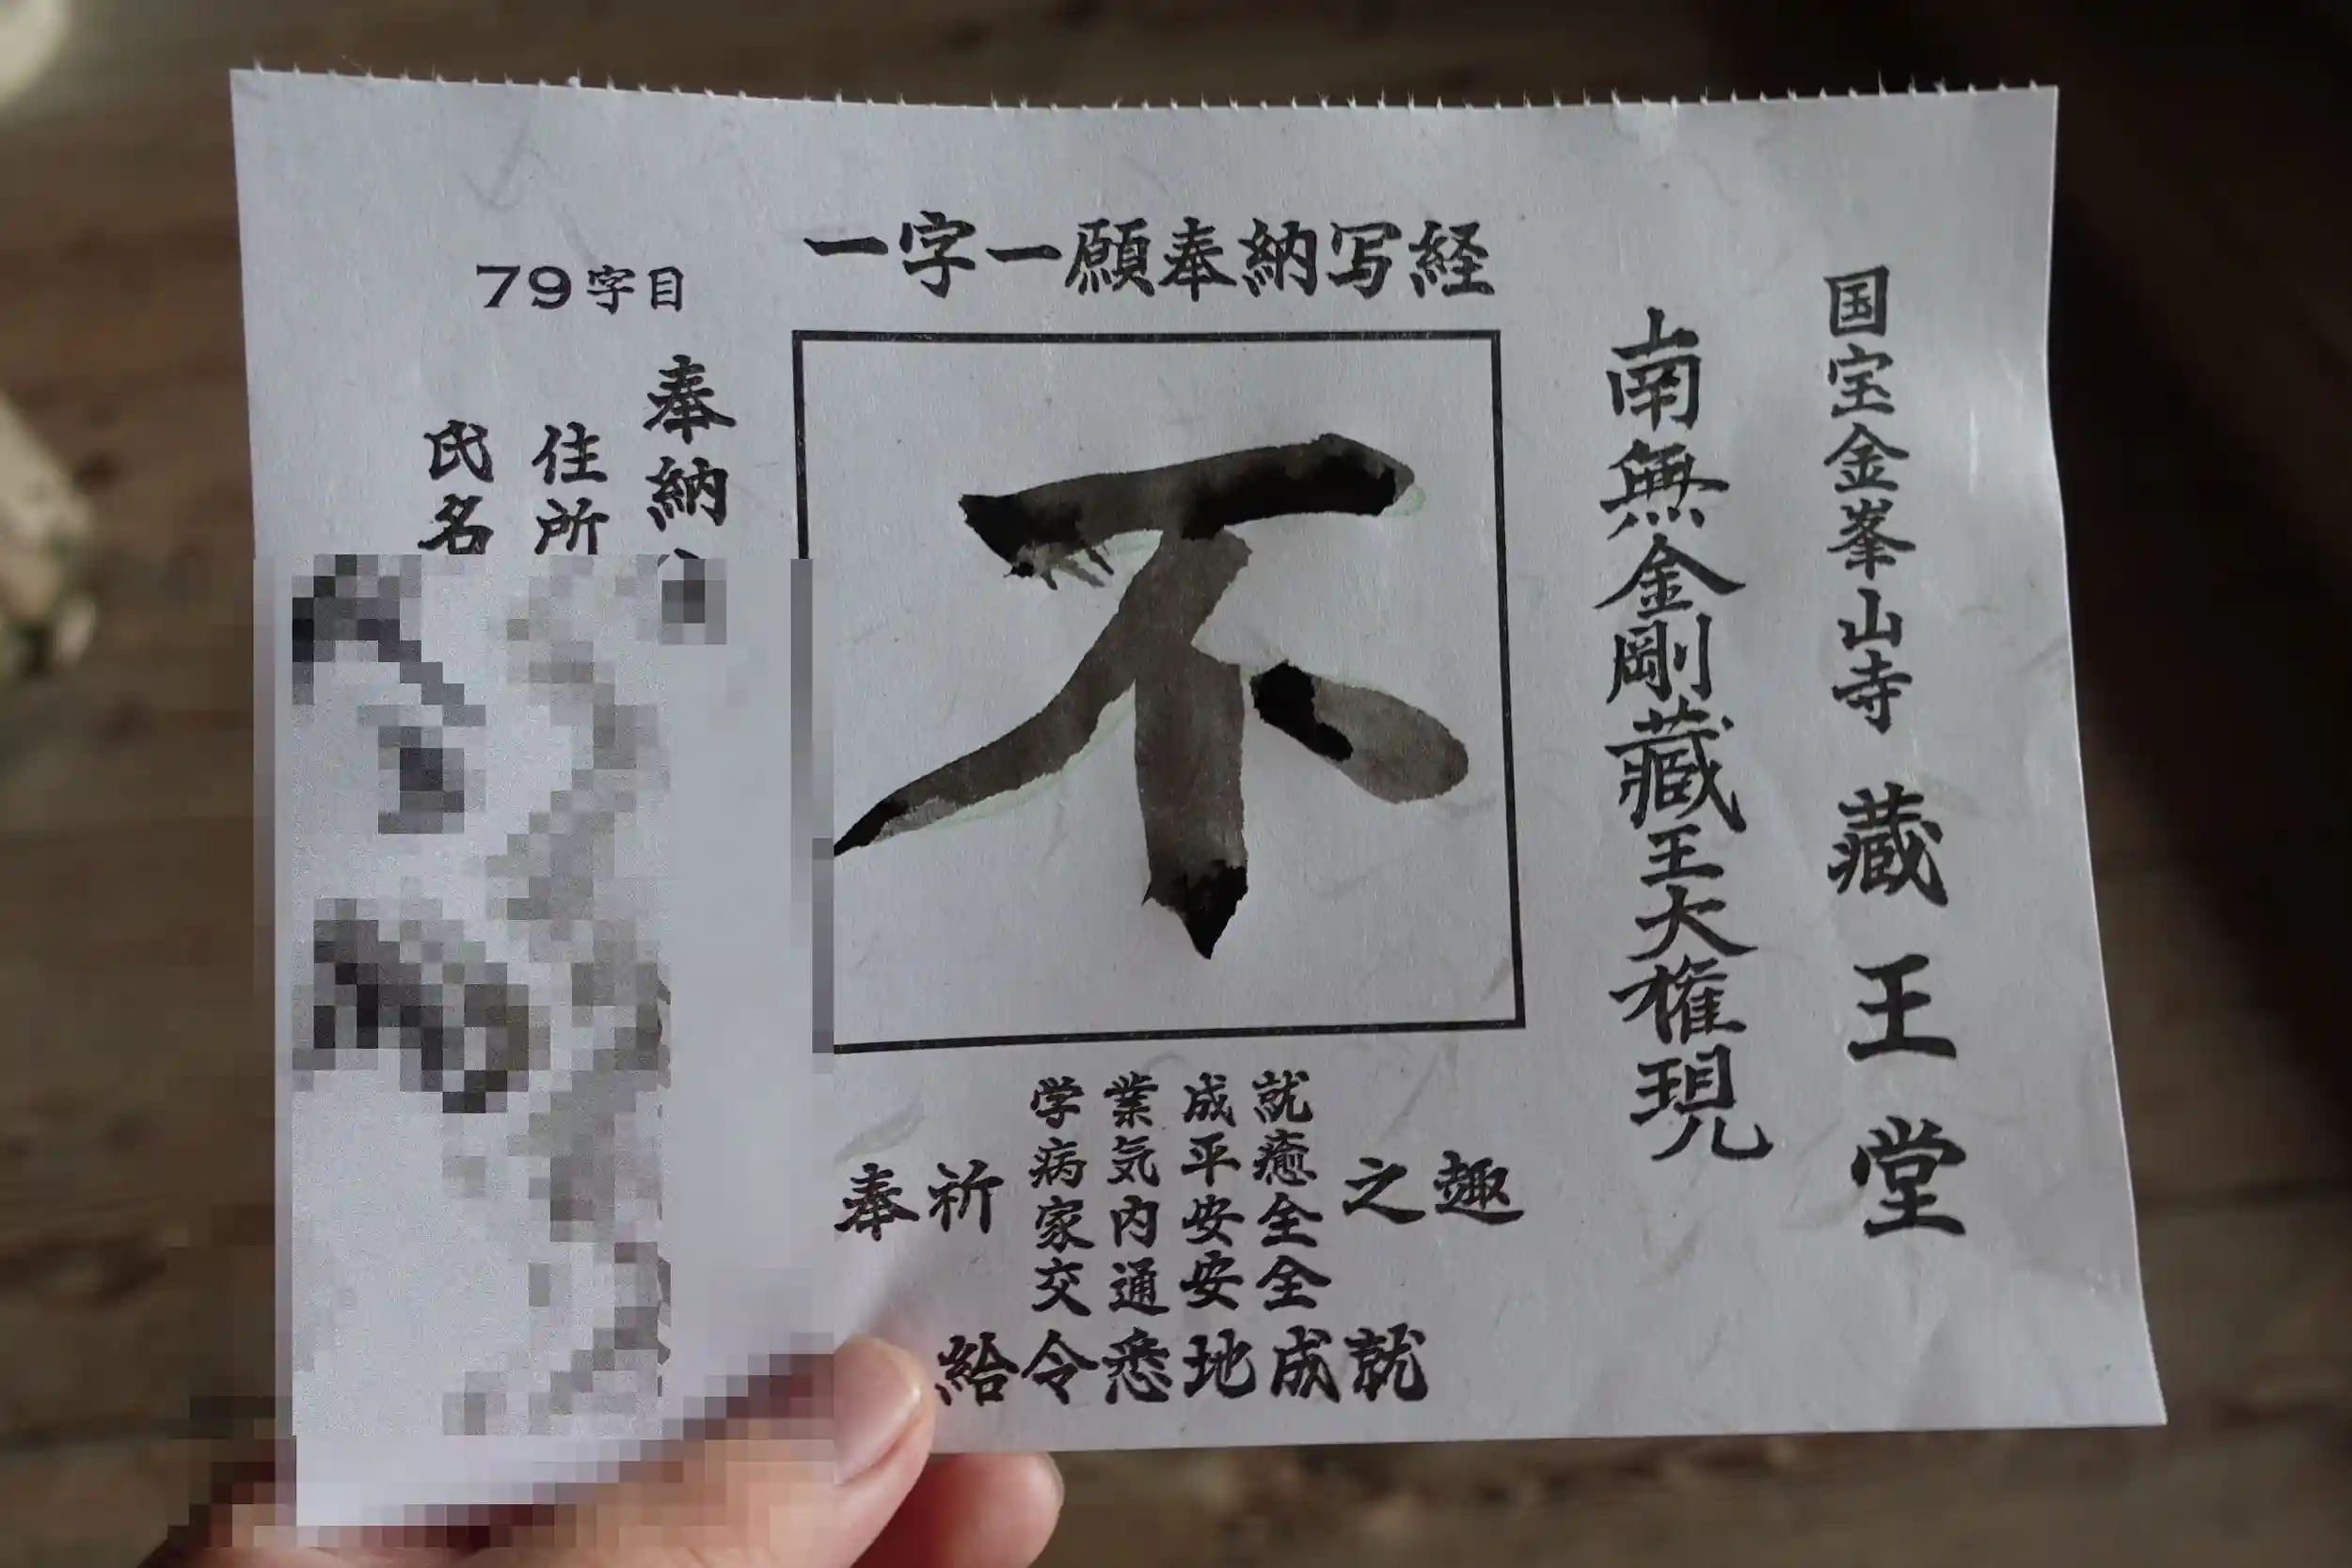 国宝金峯山寺 蔵王堂
南無金剛蔵王大権現
一字一願奉納写経
不
奉祈
学業成就
病気平癒
家内安全
交通安全
之趣
給令悉地成就
79字目
奉納
住所
氏名